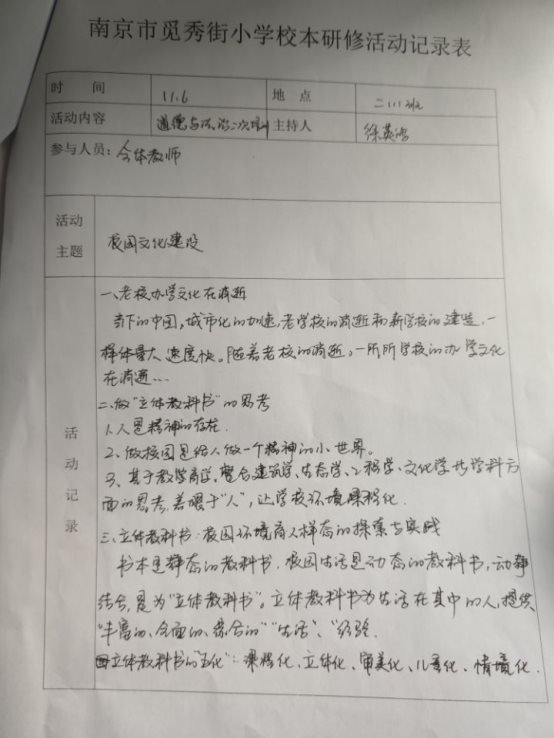 南京市觅秀街小学校本研修活动记录表
时 间 11.6 地 点 二(1)班
活动内容 道德与法治二次培训 主持人 徐英
参与人员: 全体教师
活动主题 校园文化建设
活动记录
一、老校办学文化在消逝
当下的中国,城市化的加速,老学校的消逝和新学校的建造,一
样体量大、速度快。随着老校的消逝,一所所学校的办学文化
在消逝...
二、做"立体教科书"的思考
1、人是精神的存在.
2、做校园是给人做一个精神的小世界。
3、基于教学商学,整合建筑学、生态学、工程学、文化学等学科方
面的思考,着眼于"人",让学校环境课程化.
三、立体教科书:校园环境育人样态的探索与实践
书本是静态的教科书,校园生活是动态的教科书,动静
结合,是为"立体教科书"。立体教科书为生活在其中的人,提供
"丰富的、全面的、综合的""生活"、"经验.
四立体教科书的"五化":课程化、立体化、审美化、儿童化、情境化.